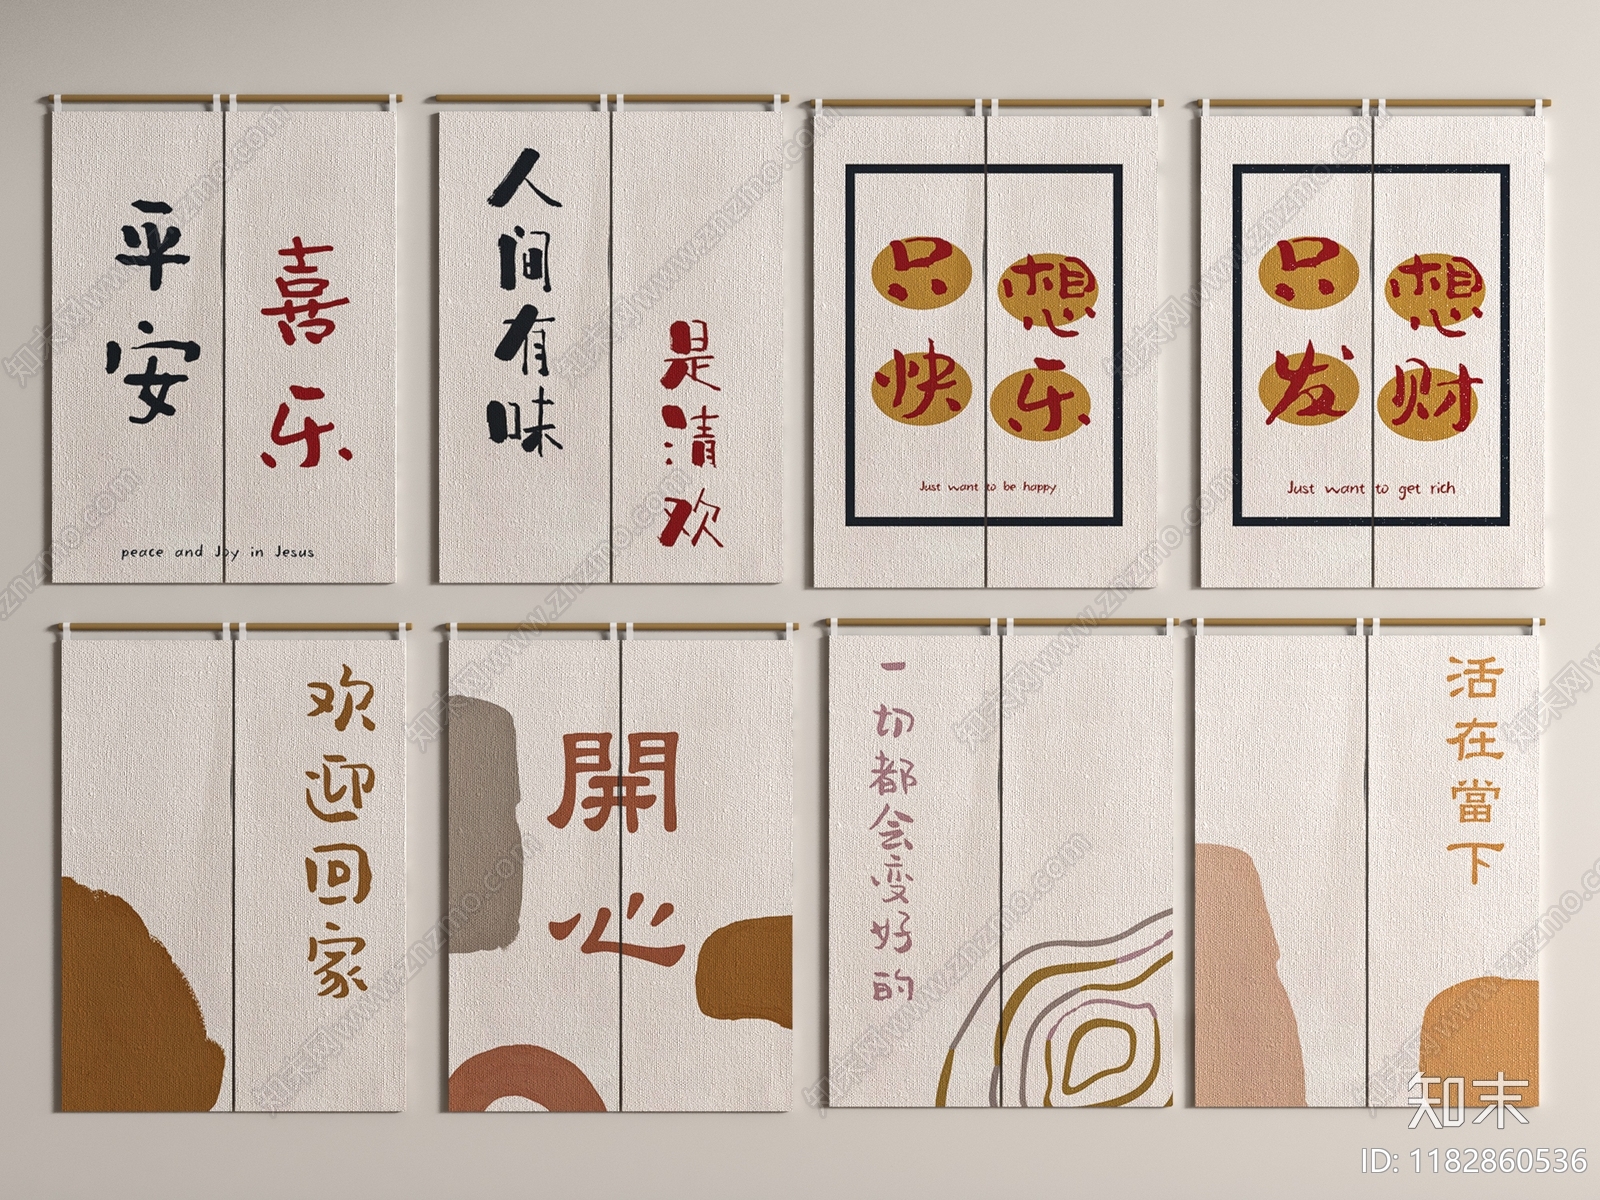 平安
喜乐
peace and Joy in Jesus
人间有味
是清欢
只想
快乐
Just want to be happy
只想
发财
Just want to get rich
欢迎回家
開心
一切都会变好的
活在當下
知末
ID: 1182860536
知末网www.znzmo.com